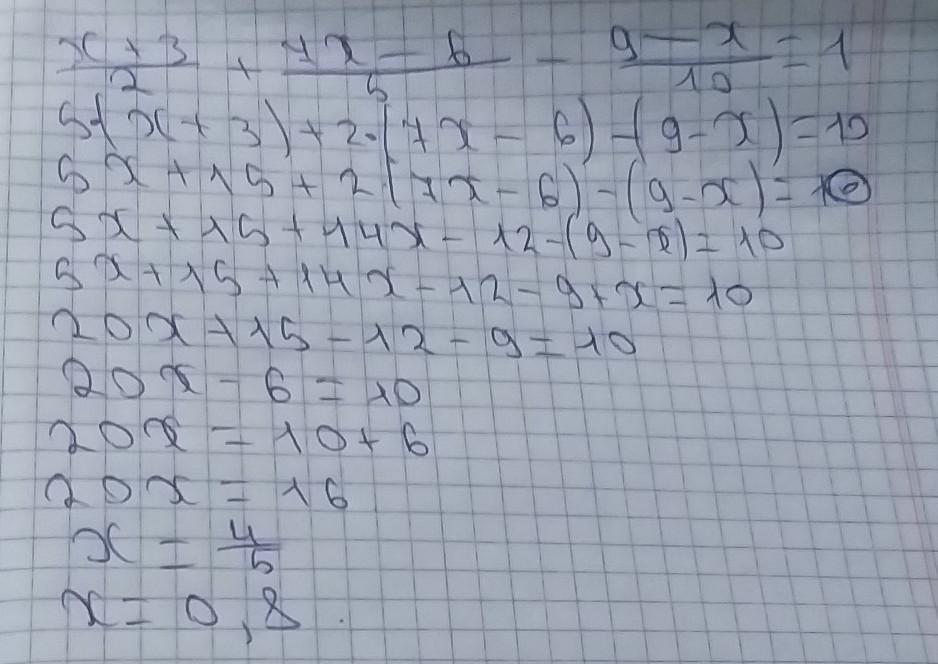 x + 3 / 2 + 7x - 6 / 5 - 9 - x / 10 = 1
5·(x + 3) + 2·(7x - 6) - (9 - x) = 10
5x + 15 + 2(7x - 6) - (9 - x) = 10
5x + 15 + 14x - 12 - (9 - x) = 10
5x + 15 + 14x - 12 - 9 + x = 10
20x + 15 - 12 - 9 = 10
20x - 6 = 10
20x = 10 + 6
20x = 16
x = 4/5
x = 0,8